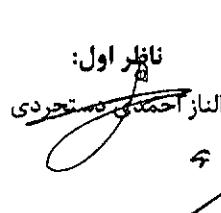 ناظر اول:
الناز احمدی دستجردی